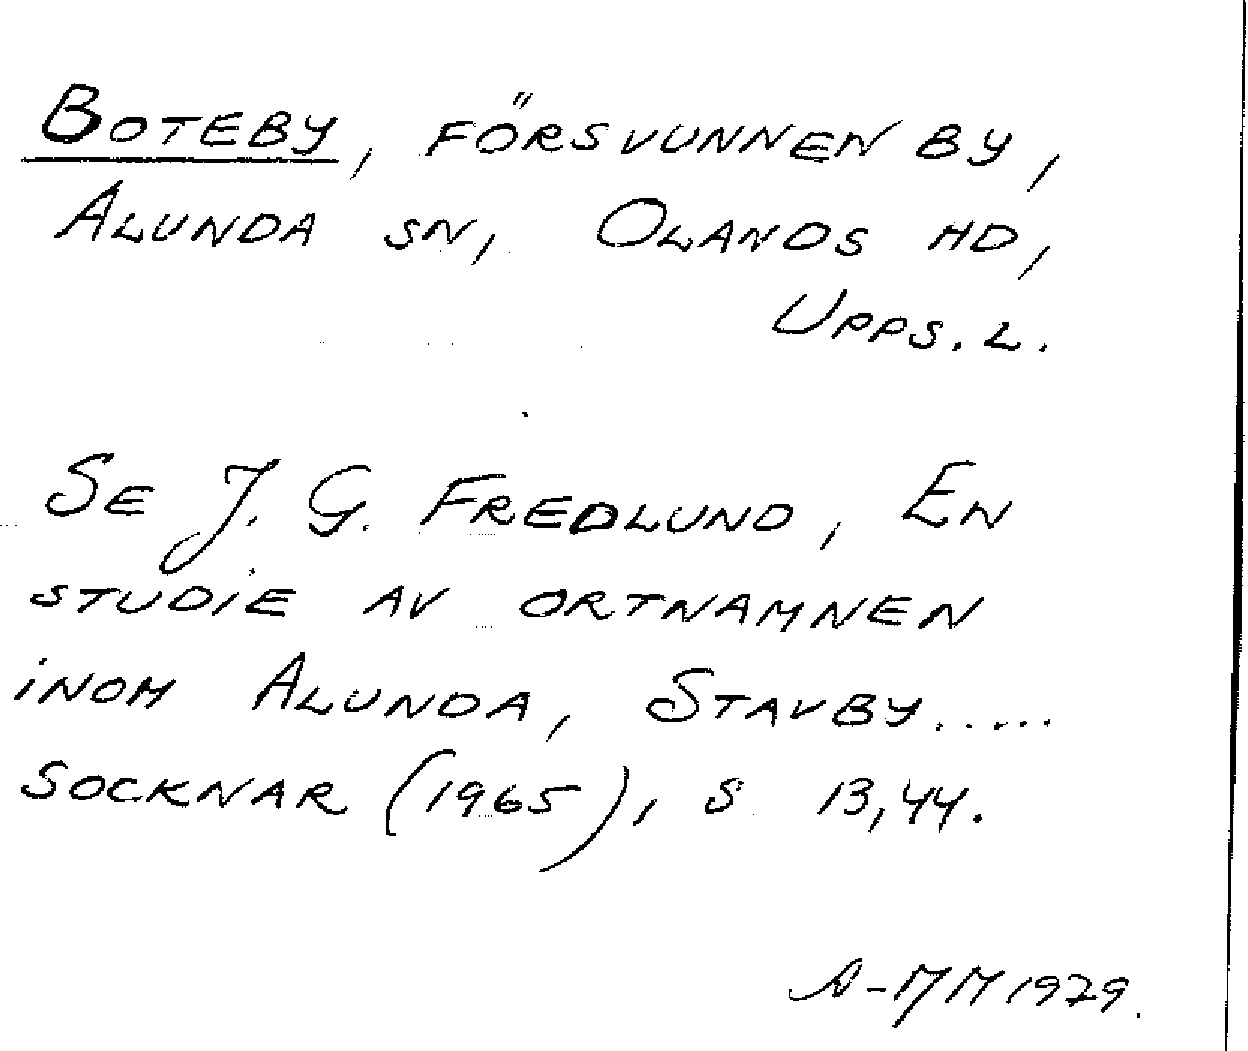 BOTEBY, FÖRSVUNNEN BY,
ALUNDA SN, OLANDS HD,
UPPS. L.
SE J. G. FREDLUND, EN
STUDIE AV ORTNAMNEN
INOM ALUNDA, STAVBY.....
SOCKNAR (1965), S 13,44.
A-MM 1979.